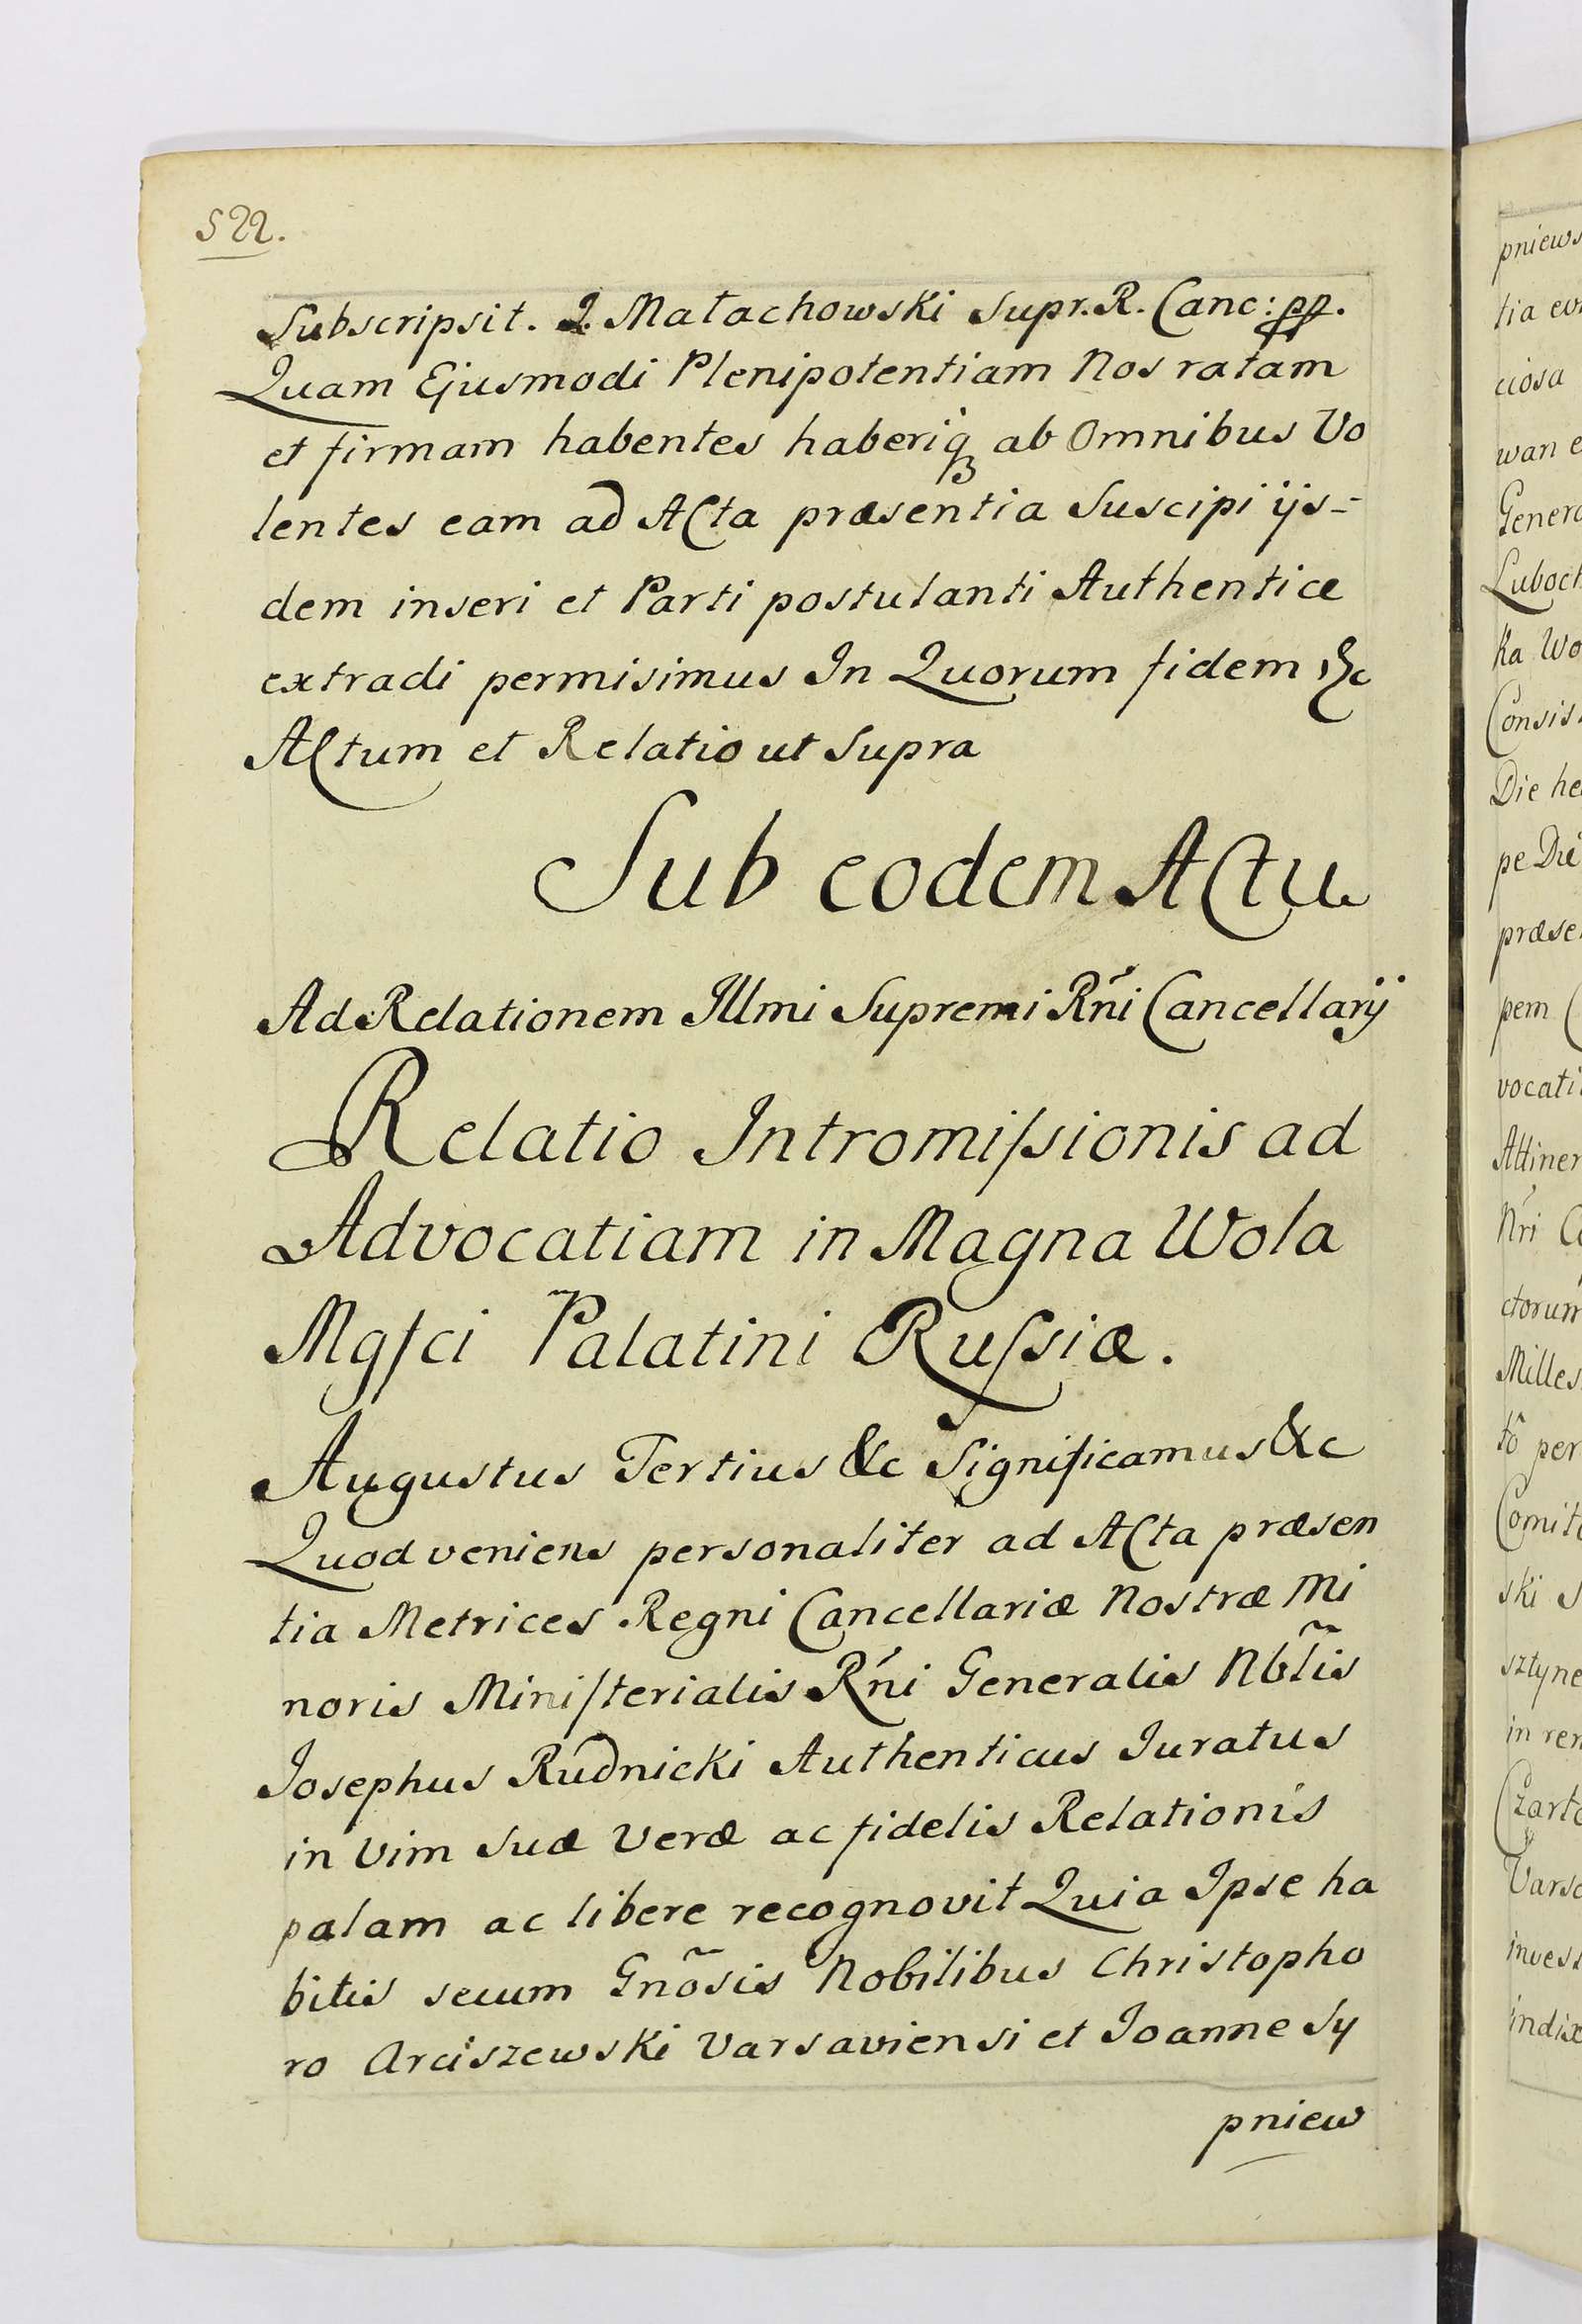 522.
Subscripsit. J. Małachowski Supr. R. Canc: pp.
Quam Ejusmodi Plenipotentiam Nos ratam
et firmam habentes haberiq3 ab Omnibus Vo
lentes eam ad Acta præsentia Suscipi ijs=
dem inseri et Parti postulanti Authentice
extradi permisimus In Quorum fidem &c
Actum et Relatio ut Supra
Sub eodem Actu
Ad Relationem Illmi Supremi Rńi Cancellarij
Relatio Intromiſsionis ad
Advocatiam in Magna Wola
Mgſci Palatini Ruſsiæ.
Augustus Tertius &c Significamus &c
Quod veniens personaliter ad Acta præsen
tia Metrices Regni Cancellariæ Nostræ Mi
noris Miniſterialis Rńi Generalis Nbl̃is
Josephus Rudnicki Authenticus Juratus
in Vim Suæ Veræ ac fidelis Relationis
palam ac libere recognovit Quia Ipse ha
bitis secum Gnõsis Nobilibus Christopho
ro Arciszewski Varsaviensi et Joanne Sy
pniew
pniews
tia
ciosa
wan
Genera
Luboch
ka Wo
Consis
Die
pe Die
præse
pem
vocati
Attinen
Nri
ctorum
Milles
tõ per
Comit
ski
sztyne
in
Czarto
Vars
invest
indix